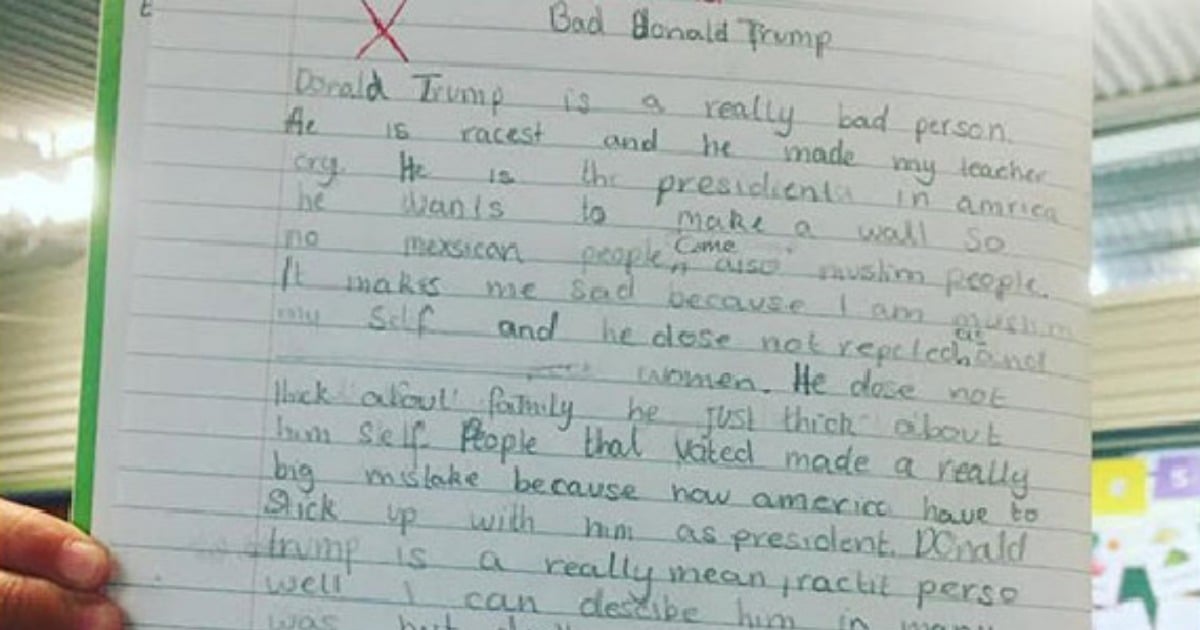 t
Bad Donald Trump
Donald Trump is a really bad person.
He is racest and he made my teacher
cry. He is the president in amrica
he wants to make a wall so
come
no mexsican people, also muslim people.
It makes me sad because I am muslim
my self and he dose not and
women. He dose not
about family he just thick about
him self People that voted made a really
big mistake because now america have to
Stick up with him as president. DOnald
trump is a really mean, ractit perso
well I can describe him in many
was